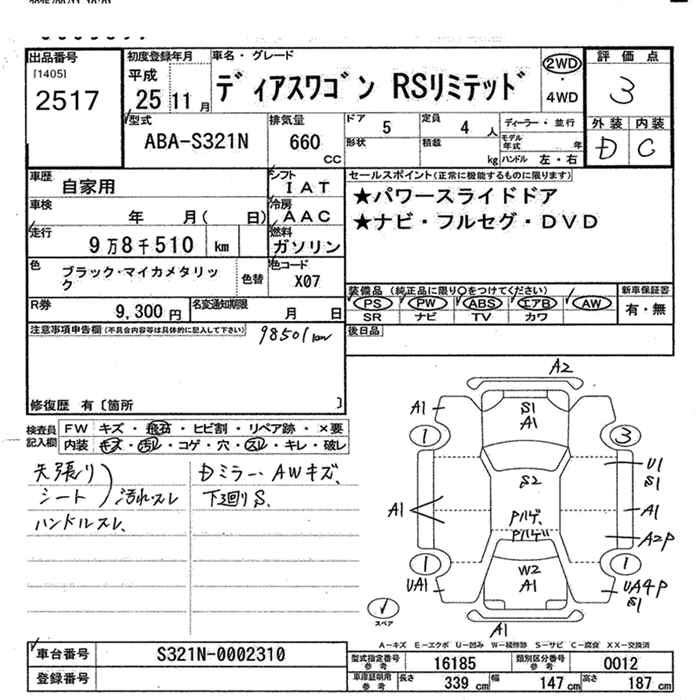 出品番号
[1405]
2517
初度登録年月
平成
25 11 月
車名・グレード
ディアスワゴン RSリミテッド
2WD
・
4WD
評価点
3
外装 内装
D C
型式
ABA-S321N
排気量
660
CC
ドア
5
定員
4 人
形状
積載
kg
ディーラー・並行
モデル年式 年
ハンドル 左・右
車歴
自家用
シフト
IAT
車検
年 月( 日)
冷房
AAC
走行
9万8千510 km
燃料
ガソリン
色
ブラック・マイカメタリック
色替
色コード
X07
R券
9,300 円
名変通知期限
月 日
セールスポイント(正常に機能するものに限ります)
★パワースライドドア
★ナビ・フルセグ・DVD
装備品(純正品に限り○をつけてください)
PS PW ABS エアB AW
SR ナビ TV カワ
新車保証書
有・無
後日品
注意事項申告欄(不具合内容等は具体的に記入して下さい)
98501km
修復歴 有〔箇所 〕
検査員記入欄
FW キズ・飛石・ヒビ割・リペア跡・×要
内装 キズ・汚れ・コゲ・穴・スレ・キレ・破レ
天張り
シート
汚れスレ
ハンドルスレ、
Dミラー、AWキズ、
下廻りS、
A2
A1
S1
A1
1
3
S2
U1
S1
A1
Pハゲ、
Pハゲ
A1
A2P
W2
A1
1
1
UA1
UA4P
S1
A1
スペア
A-キズ E-エクボ U-凹み W-補修跡 S-サビ C-腐食 XX-交換済
車台番号
S321N-0002310
登録番号
型式指定番号 参考
16185
類別区分番号 参考
0012
車庫証明用 参考
長さ 339 cm
幅 147 cm
高さ 187 cm